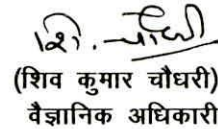 शि. चौधरी
(शिव कुमार चौधरी)
वैज्ञानिक अधिकारी